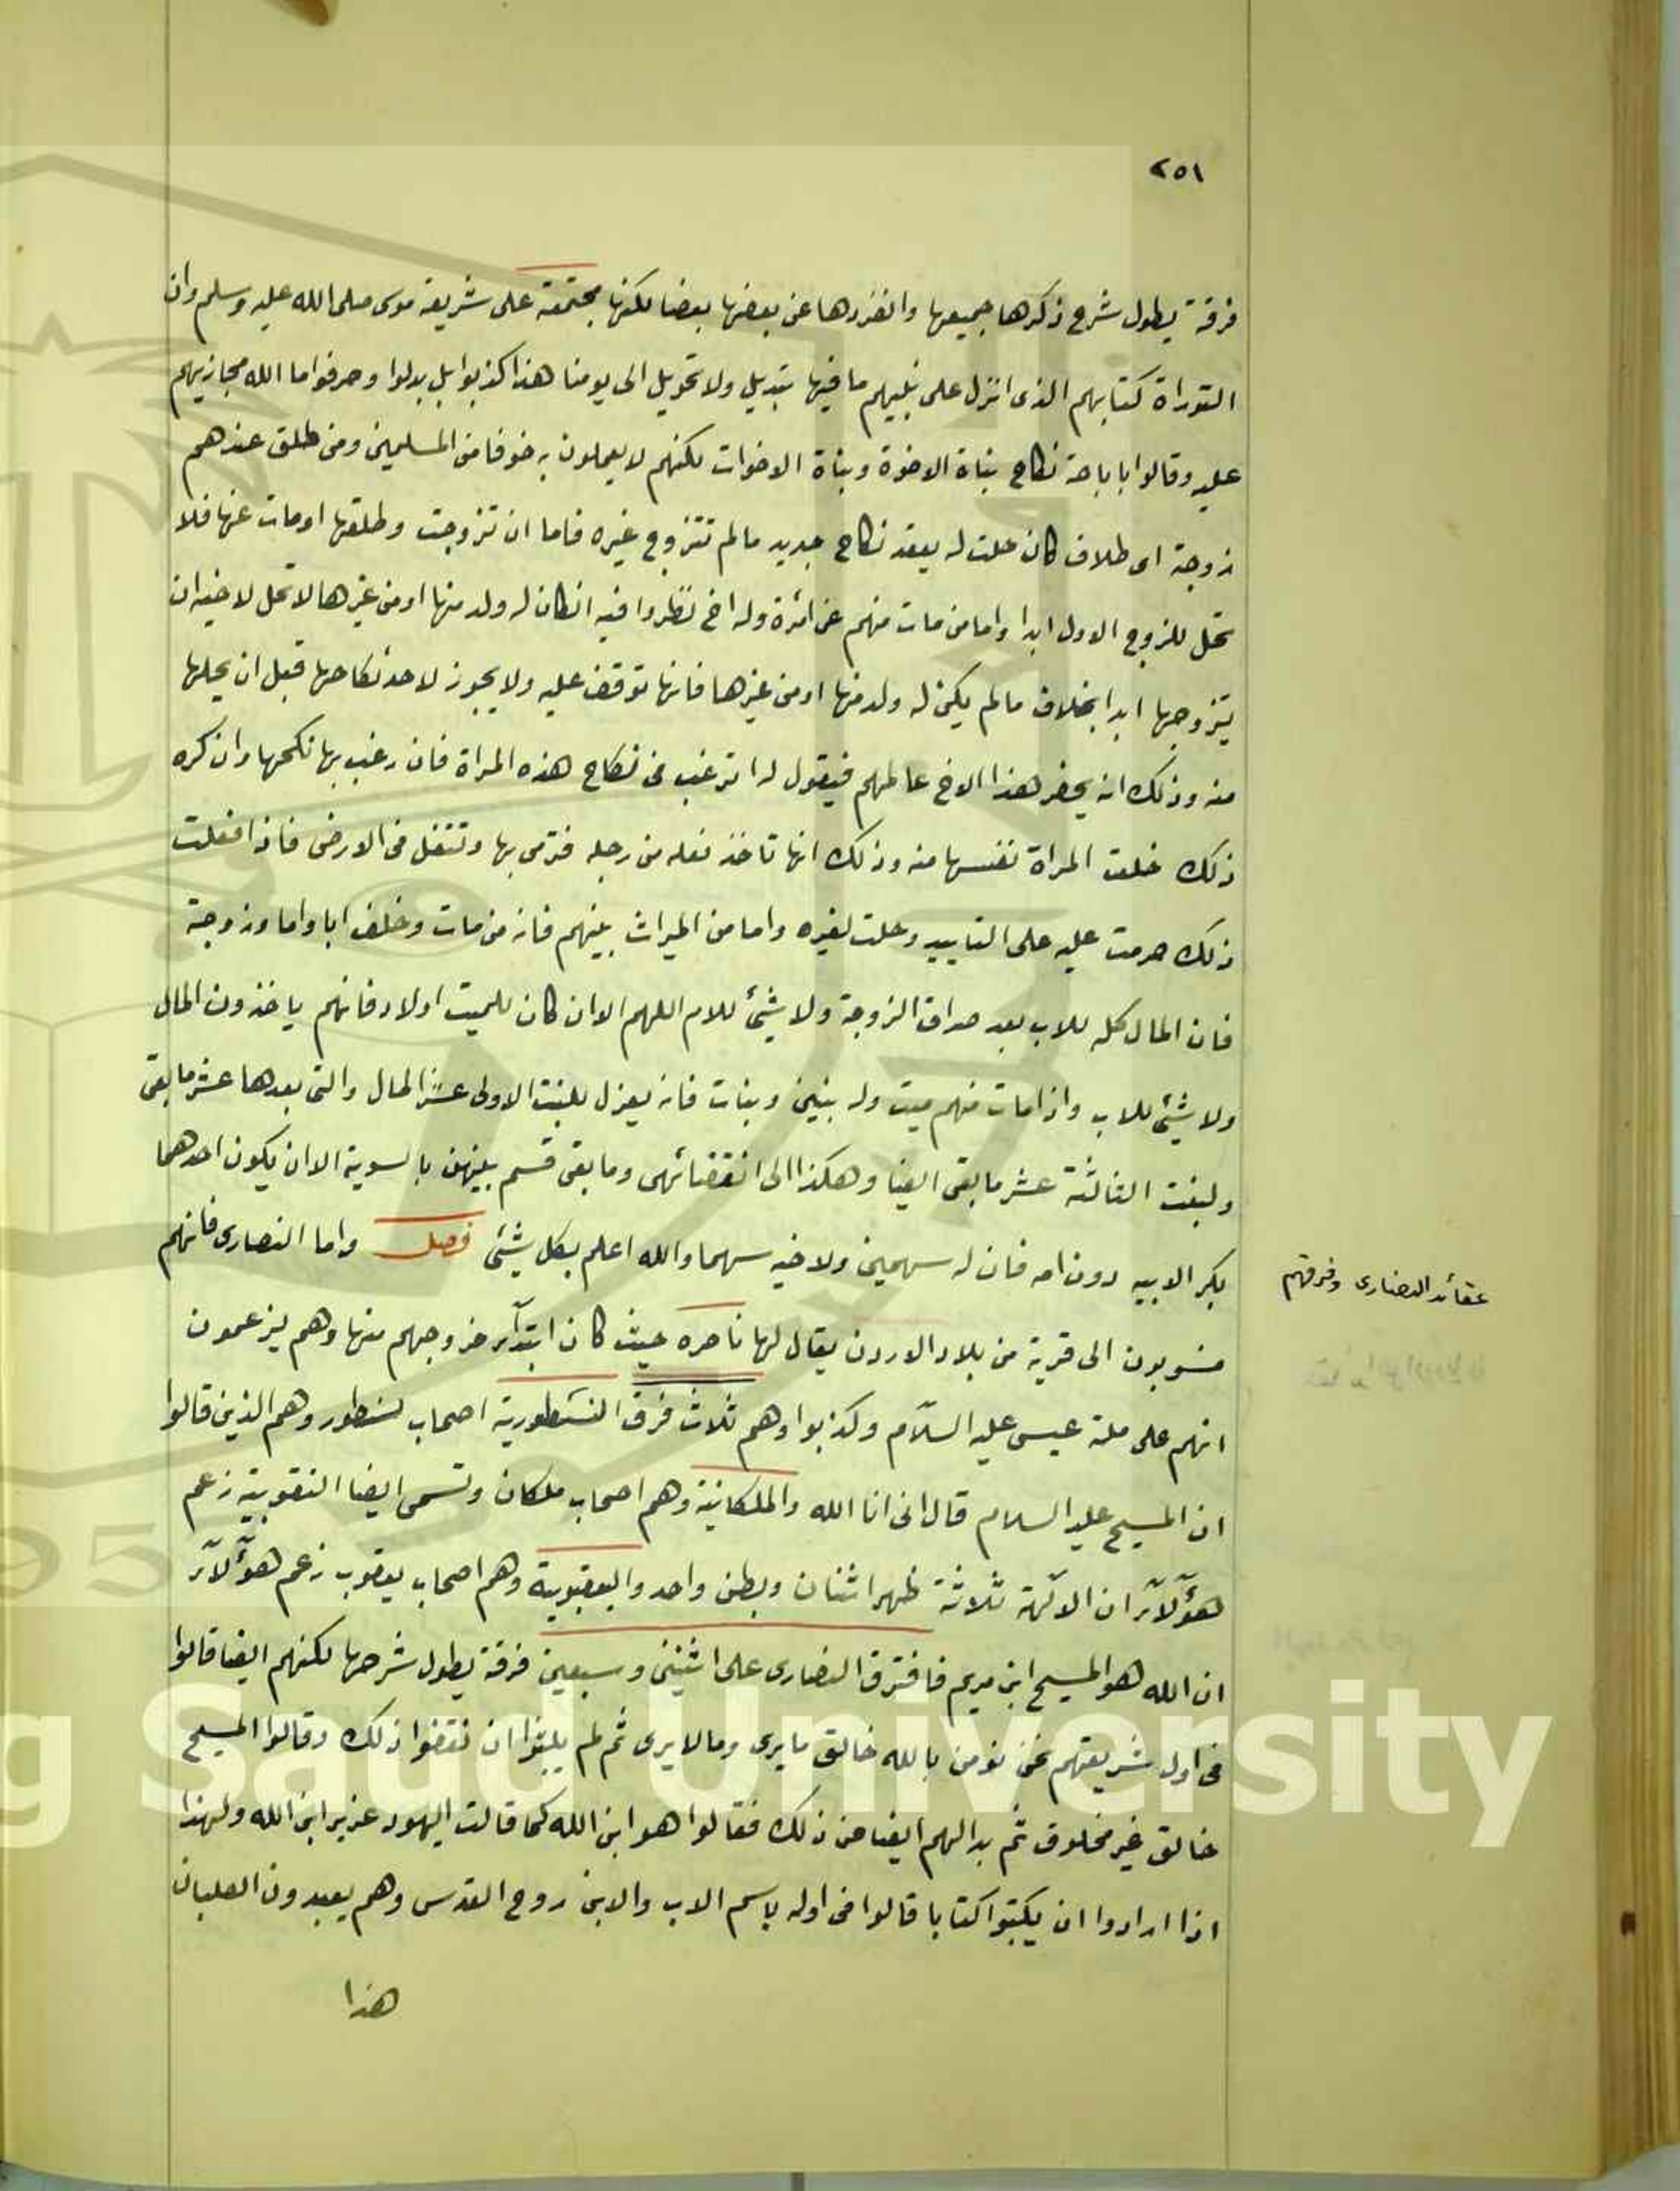 ٢٥١
فرقة يطول شرح ذكرها جميعها وانفردها عن بعضها بعضا لكنها مجتمعة على شريعة موسى صلى الله عليه وسلم وان
التوراة كتابهم الذى انزل على نبيهم ما فيها تبديل ولا تحويل الى يومنا هذا كذبوا بل بدلوا وحرفوا ما الله مجازيهم
عليه وقالوا باباحة نكاح بناة الاخوة وبناة الاخوات لكنهم لا يعملون به خوفا من المسلمين ومن طلق عندهم
زوجة اى طلاق كان حلت له بعقد نكاح جديد ما لم تتزوج غيره فاما ان تزوجت وطلقها او مات عنها فلا
تحل للزوج الاول ابدا واما من مات منهم عن امرة وله اخ نظروا فيه انكان له ولد منها او من غيرها لا تحل لاخيه ان
يتزوجها ابدا بخلاف ما لم يكن له ولد منها او من غيرها فانها توقف عليه ولا يجوز لاحد نكاحها قبل ان يحلها
منه وذلك انه يحضر هذا الاخ عالمهم فيقول له اترغب فى نكاح هذه المراة فان رغب بها نكحها وان كره
ذلك خلعت المراة نفسها منه وذلك انها تاخذ نعله من رجله فترمى بها وتتفل فى الارض فاذا فعلت
ذلك حرمت عليه على التابيد وحلت لغيره واما من الميراث بينهم فانه من مات وخلف ابا واما وزوجة
فان المال كله للاب بعد صداق الزوجة ولا شئ للام اللهم الا وان كان للميت اولاد فانهم ياخذون المال
ولا شئ للاب واذا مات منهم ميت وله بنين وبنات فانه يعزل للبنت الاولى عشر المال والتى بعدها عشر ما بقى
ولبنت الثالثة عشر ما بقى ايضا وهكذا الى انقضائهى وما بقى قسم بينهن بالسوية الا ان يكون احدهما
بكر الابيه دون امه فان له سهمين ولاخيه سهما والله اعلم بكل شئ فصل واما النصارى فانهم
عقائد النصارى وفرقهم
منسوبون الى قرية من بلاد الاردن يقال لها ناصره حيث كان ابتدآء خروجهم منها وهم يزعمون
انهم على ملة عيسى عليه السلام وكذبوا وهم ثلاث فرق النسطورية اصحاب نسطور وهم الذين قالوا
ان المسيح عليه السلام قال انى انا الله والملكانية وهم اصحاب ملكان وتسمى ايضا النقوبية زعم
هؤلآء ان الالهة ثلاثة ظهر اثنان وبطن واحد واليعقوبية وهم اصحاب يعقوب زعم هؤلآء
ان الله هو المسيح ابن مريم فافترق النصارى على اثنين وسبعين فرقة يطول شرحها لكنهم ايضا قالوا
فى اول شريعتهم نحن نومن بالله خالق ما يرى وما لا يرى ثم لم يلبثوا ان نقضوا ذلك وقالوا المسيح
خالق غير مخلوق ثم بدالهم ايضا من ذلك فقالوا هو ابن الله كما قالت اليهود عزير ابن الله ولهذا
اذا ارادوا ان يكتبوا كتابا قالوا فى اوله باسم الاب والابن روح القدس وهم يعبدون الصلبان
هذا
g Saud University